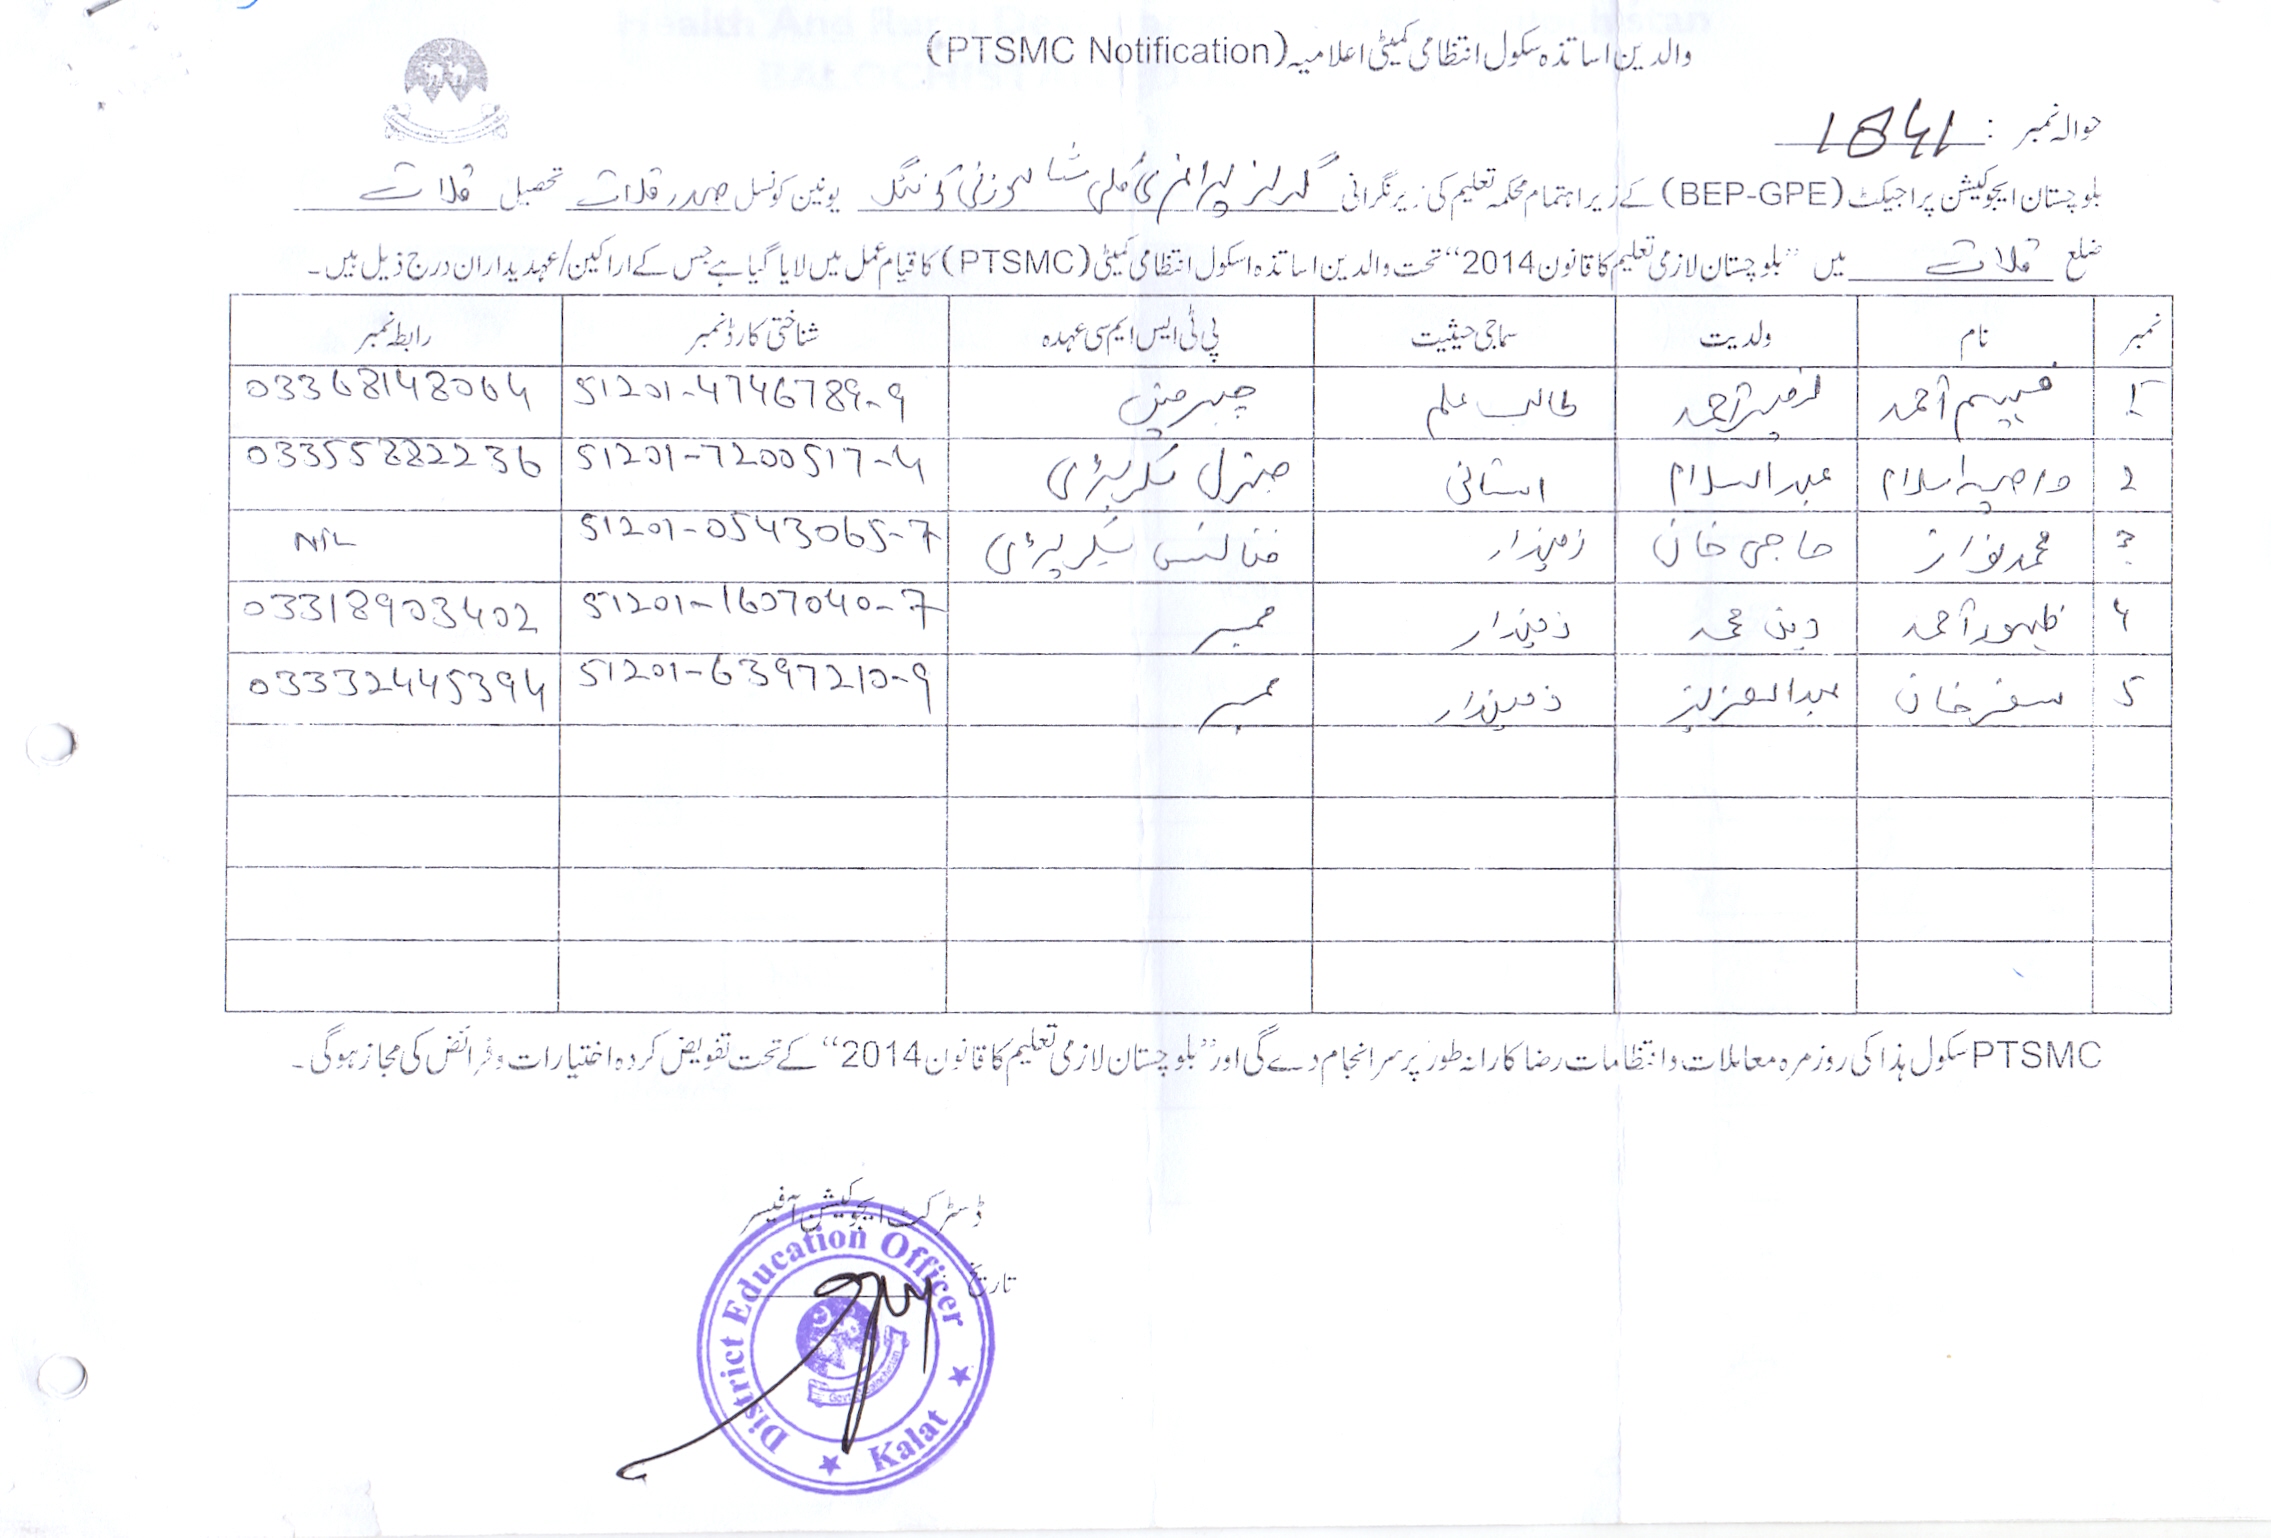 والدین اساتذہ سکول انتظامی کمیٹی اعلامیہ (PTSMC Notification)
حوالہ نمبر : 1841
بلوچستان ایجوکیشن پراجیکٹ (BEP-GPE) کے زیر اہتمام محکمہ تعلیم کی زیر نگرانی گرلز پرائمری یونین کونسل صدر قلات تحصیل قلات
ضلع قلات میں "بلوچستان لازمی تعلیم کا قانون 2014" تحت والدین اساتذہ اسکول انتظامی کمیٹی (PTSMC) کا قیام عمل میں لایا گیا ہے جس کے اراکین/عہدیداران درج ذیل ہیں۔
نمبر نام ولدیت سماجی حیثیت پی ٹی ایس ایم سی عہدہ شناختی کارڈ نمبر رابطہ نمبر
1 احمد احمد طالب علم چیرمین 51201-4746789-9 03368148064
2 عبدالسلام استانی جنرل سکریٹری 51201-7200517-4 03355882236
3 محمد نواز حاجی خان زمیندار فنانس سیکریٹری 51201-0543065-7 Nil
4 ظہور احمد دین محمد زمیندار ممبر 51201-1607040-7 03318903402
5 سفر خان عبدالعزیز زمیندار ممبر 51201-6397210-9 03332445394
PTSMC سکول ہذا کی روزمرہ معاملات و انتظامات رضا کارانہ طور پر سرانجام دے گی اور "بلوچستان لازمی تعلیم کا قانون 2014" کے تحت تفویض کردہ اختیارات و فرائض کی مجاز ہوگی۔
ڈسٹرکٹ ایجوکیشن آفیسر
تاریخ
District Education Officer
Kalat